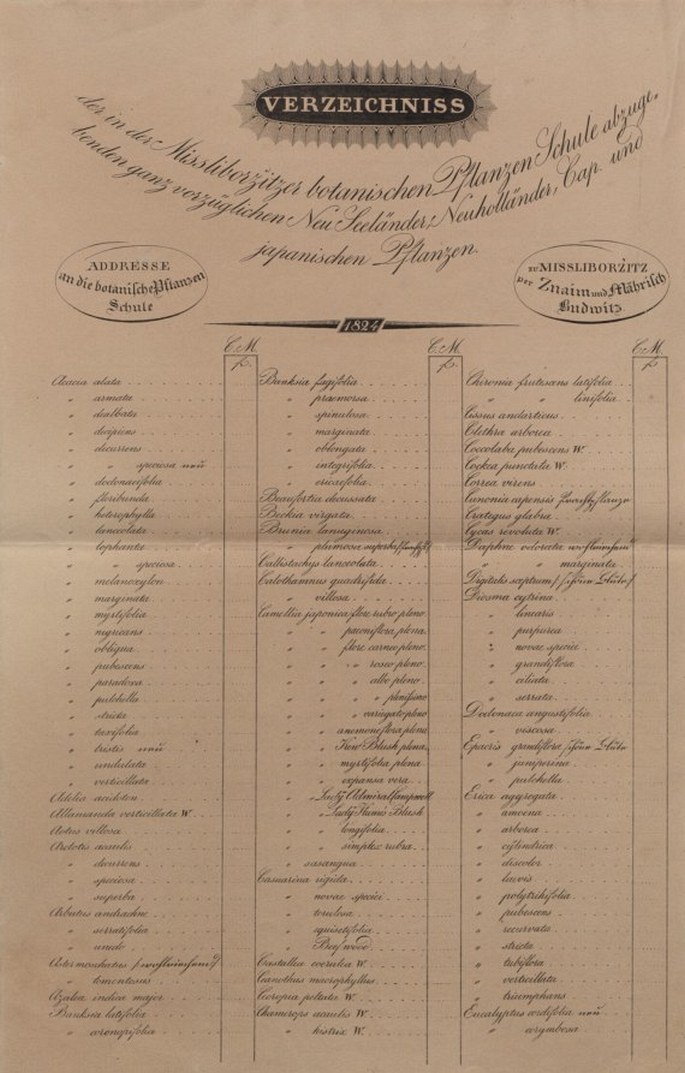 VERZEICHNISS
der in der Missliborzitzer botanischen Pflanzen Schule abzuge,
benden ganz vorzüglichen Neu Seeländer, Neuholländer, Cap. und
japanischen Pflanzen.
ADDRESSE
an die botanische Pflanzen
Schule
zu MISSLIBORŽITZ
per Znaim und Mährisch
Budwitz
1824
C.M.
f.
Acacia alata
" armata
" dealbata
" decipiens
" decurrens
" " speciosa neü
" dodonaeifolia
" floribunda
" heterophylla
" lanceolata
" lophanta
" " speciosa
" melanoxylon
" marginata
" myrtifolia
" nigricans
" obliqua
" pubescens
" paradoxa
" pulchella
" stricta
" taxifolia
" tristis neü
" undulata
" verticillata
Adelia acidoton
Allamanda verticillata W.
Aotus villosa
Arctotis acaulis
" decurrens
" speciosa
" superba
Arbutus andrachne
" serratifolia
" unedo
Astermoschatus (wohlriechend)
" tomentosus
Azalea indica major
Banksia latifolia
" corongifolia
C.M.
f.
Banksia fagifolia
" praemorsa
" spinulosa
" marginata
" oblongata
" integrifolia
" ericaefolia
Beaufortia decussata
Beckia virgata
Brunia lanuginosa
" plumosa superba
Callistachys lanceolata
Calothamnus quadrifida
" villosa
Camellia japonica flore rubro pleno
" " paeoniflora plena
" " flore carneo pleno
" " " roseo pleno
" " " albo pleno
" " " " plenissimo
" " " variegato pleno
" " anemoneflora plena
" " Kew Blush plena
" " myrtifolia plena
" " expansa vera
" " Lady Admiral Campwell
" " Lady Hum's Blush
" " longifolia
" " simplex rubra
" sasanqua
Casuarina rigida
" novae speciei
" torulosa
" equisetifolia
" Beefwood
Castallea coerulia W.
Canothus macrophyllus
Ceropia peltatis W.
Chamerops acaulis W.
" histrix W.
C.M.
f.
Chironia frutescens latifolia
" " linifolia
Cissus andarticus
Clethra arborea
Coccolaba pubescens W.
Cockea punctata W.
Correa virens
Cunonia capensis Prachtpflanze
Crategus glabra
Cycas revoluta W.
Daphne odorata wohlriechend
" " marginata
Digitalis sceptrum (schöne Blüte)
Diosma cytrina
" linearis
" purpurea
" novae speciei
" grandiflora
" ciliata
" serrata
Dodonaea angustifolia
" viscosa
Epacris grandiflora schöne Blüte
" juniperina
" pulchella
Erica aggregata
" amoena
" arborea
" cylindrica
" discolor
" laevis
" polytrihifolia
" pubescens
" recurvata
" stricta
" tubiflora
" verticillata
" triumphans
Eucalyptus cordifolia neü
" corymbosa